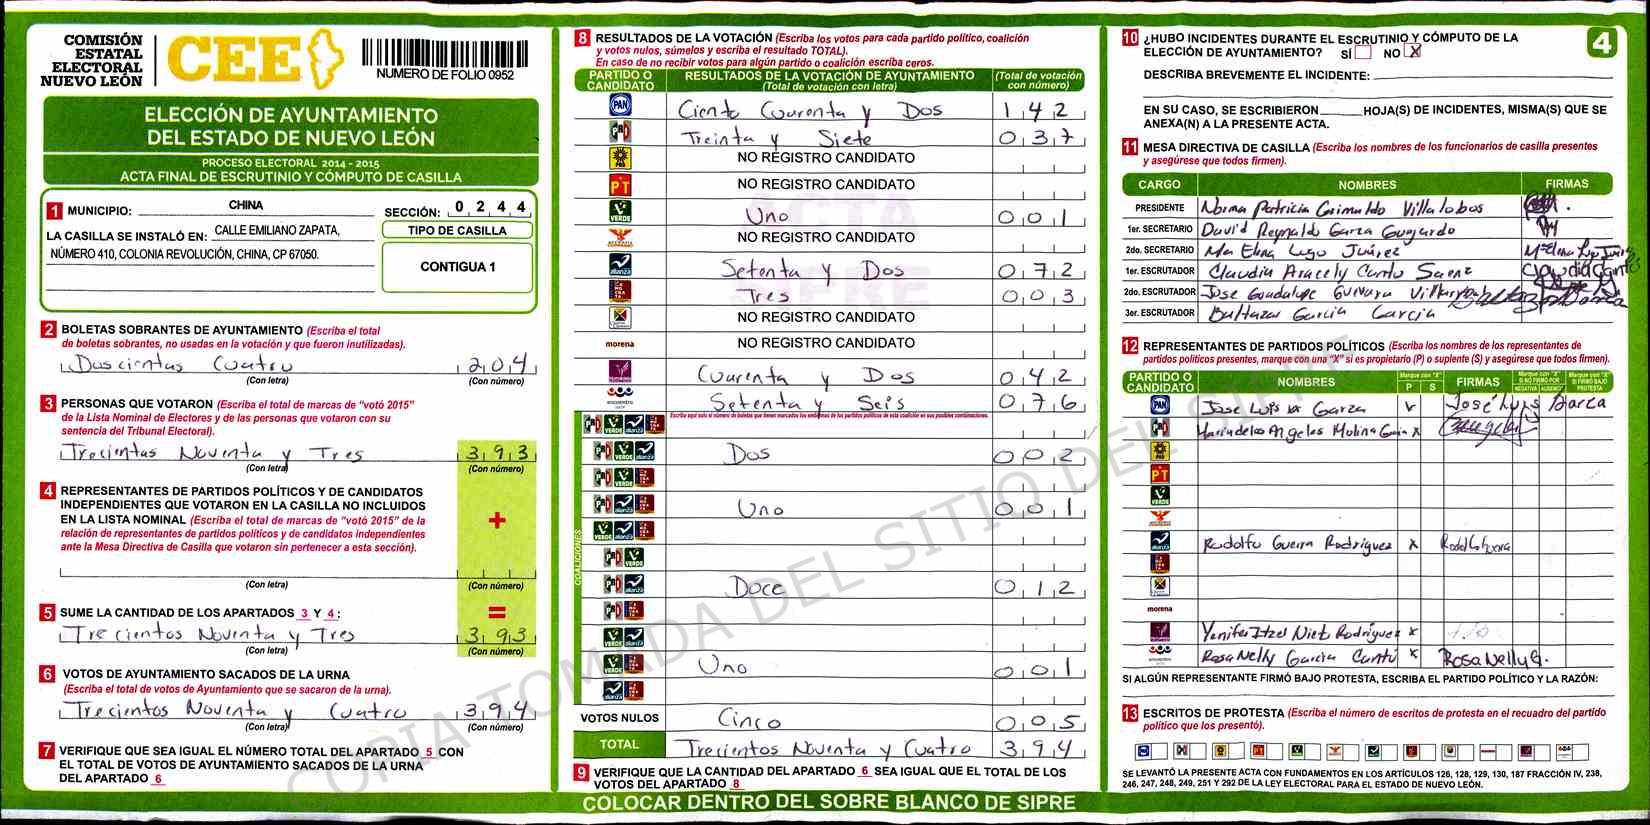 COMISIÓN
ESTATAL
ELECTORAL
NUEVO LEÓN
CEE
NUMERO DE FOLIO 0952
ELECCIÓN DE AYUNTAMIENTO
DEL ESTADO DE NUEVO LEÓN
PROCESO ELECTORAL 2014 - 2015
ACTA FINAL DE ESCRUTINIO Y CÓMPUTO DE CASILLA
1 MUNICIPIO: CHINA SECCIÓN: 0 2 4 4
LA CASILLA SE INSTALÓ EN: CALLE EMILIANO ZAPATA,
NÚMERO 410, COLONIA REVOLUCIÓN, CHINA, CP 67050.
TIPO DE CASILLA
CONTIGUA 1
2 BOLETAS SOBRANTES DE AYUNTAMIENTO (Escriba el total
de boletas sobrantes, no usadas en la votación y que fueron inutilizadas).
Doscientas Cuatro 2 0 4
(Con letra) (Con número)
3 PERSONAS QUE VOTARON (Escriba el total de marcas de "votó 2015"
de la Lista Nominal de Electores y de las personas que votaron con su
sentencia del Tribunal Electoral).
Trecientas Noventa y Tres 3 9 3
(Con letra) (Con número)
4 REPRESENTANTES DE PARTIDOS POLÍTICOS Y DE CANDIDATOS
INDEPENDIENTES QUE VOTARON EN LA CASILLA NO INCLUIDOS
EN LA LISTA NOMINAL (Escriba el total de marcas de "votó 2015" de la
relación de representantes de partidos políticos y de candidatos independientes
ante la Mesa Directiva de Casilla que votaron sin pertenecer a esta sección).
+
(Con letra) (Con número)
5 SUME LA CANTIDAD DE LOS APARTADOS 3 Y 4: =
Trecientos Noventa y Tres 3 9 3
(Con letra) (Con número)
6 VOTOS DE AYUNTAMIENTO SACADOS DE LA URNA
(Escriba el total de votos de Ayuntamiento que se sacaron de la urna).
Trecientos Noventa y Cuatro 3 9 4
(Con letra) (Con número)
7 VERIFIQUE QUE SEA IGUAL EL NÚMERO TOTAL DEL APARTADO 5 CON
EL TOTAL DE VOTOS DE AYUNTAMIENTO SACADOS DE LA URNA
DEL APARTADO 6
8 RESULTADOS DE LA VOTACIÓN (Escriba los votos para cada partido político, coalición
y votos nulos, súmelos y escriba el resultado TOTAL).
En caso de no recibir votos para algún partido o coalición escriba ceros.
PARTIDO O CANDIDATO RESULTADOS DE LA VOTACIÓN DE AYUNTAMIENTO (Total de votación con letra) (Total de votación con número)
PAN Ciento Cuarenta y Dos 1 4 2
PRD Treinta y Siete 0 3 7
PRD NO REGISTRO CANDIDATO
PT NO REGISTRO CANDIDATO
VERDE Uno 0 0 1
NO REGISTRO CANDIDATO
alianza Setenta y Dos 0 7 2
Tres 0 0 3
NO REGISTRO CANDIDATO
morena NO REGISTRO CANDIDATO
Cuarenta y Dos 0 4 2
encuentro Setenta y Seis 0 7 6
Escriba aquí solo el número de boletas que tienen marcados los emblemas de los partidos políticos de esta coalición en sus posibles combinaciones.
COALICIONES
Dos 0 0 2
Uno 0 0 1
Doce 0 1 2
Uno 0 0 1
VOTOS NULOS Cinco 0 0 5
TOTAL Trecientos Noventa y Cuatro 3 9 4
9 VERIFIQUE QUE LA CANTIDAD DEL APARTADO 6 SEA IGUAL QUE EL TOTAL DE LOS
VOTOS DEL APARTADO 8
COLOCAR DENTRO DEL SOBRE BLANCO DE SIPRE
ACTA
SIPRE
COPIA TOMADA DEL SITIO DEL SIPRE
4
10 ¿HUBO INCIDENTES DURANTE EL ESCRUTINIO Y CÓMPUTO DE LA
ELECCIÓN DE AYUNTAMIENTO? SÍ NO X
DESCRIBA BREVEMENTE EL INCIDENTE:
EN SU CASO, SE ESCRIBIERON HOJA(S) DE INCIDENTES, MISMA(S) QUE SE
ANEXA(N) A LA PRESENTE ACTA.
11 MESA DIRECTIVA DE CASILLA (Escriba los nombres de los funcionarios de casilla presentes
y asegúrese que todos firmen).
CARGO NOMBRES FIRMAS
PRESIDENTE Norma Patricia Grimaldo Villalobos
1er. SECRETARIO David Reynaldo Garza Guajardo
2do. SECRETARIO Ma Elena Lugo Juárez
1er. ESCRUTADOR Claudia Aracely Cantu Saenz
2do. ESCRUTADOR Jose Guadalupe Guevara
3er. ESCRUTADOR Baltazar Garcia Garcia
12 REPRESENTANTES DE PARTIDOS POLÍTICOS (Escriba los nombres de los representantes de
partidos políticos presentes, marque con una "X" si es propietario (P) o suplente (S) y asegúrese que todos firmen).
PARTIDO O CANDIDATO NOMBRES Marque con "X" P S FIRMAS Marque con "X" SI NO FIRMÓ POR NEGATIVA AUSENCIA Marque con "X" SI FIRMÓ BAJO PROTESTA
PAN Jose Luis Garza José Luis Garza
Maria de los Angeles Molina x
PRD
PT
VERDE
alianza Rodolfo Guerra Rodriguez x
morena
Yenifer Itzel Nieto Rodriguez x
Rosa Nelly Garcia Cantú x Rosa Nelly G.
SI ALGÚN REPRESENTANTE FIRMÓ BAJO PROTESTA, ESCRIBA EL PARTIDO POLÍTICO Y LA RAZÓN:
13 ESCRITOS DE PROTESTA (Escriba el número de escritos de protesta en el recuadro del partido
político que los presentó).
SE LEVANTÓ LA PRESENTE ACTA CON FUNDAMENTOS EN LOS ARTÍCULOS 126, 128, 129, 130, 187 FRACCIÓN IV, 238,
246, 247, 248, 249, 251 Y 292 DE LA LEY ELECTORAL PARA EL ESTADO DE NUEVO LEÓN.